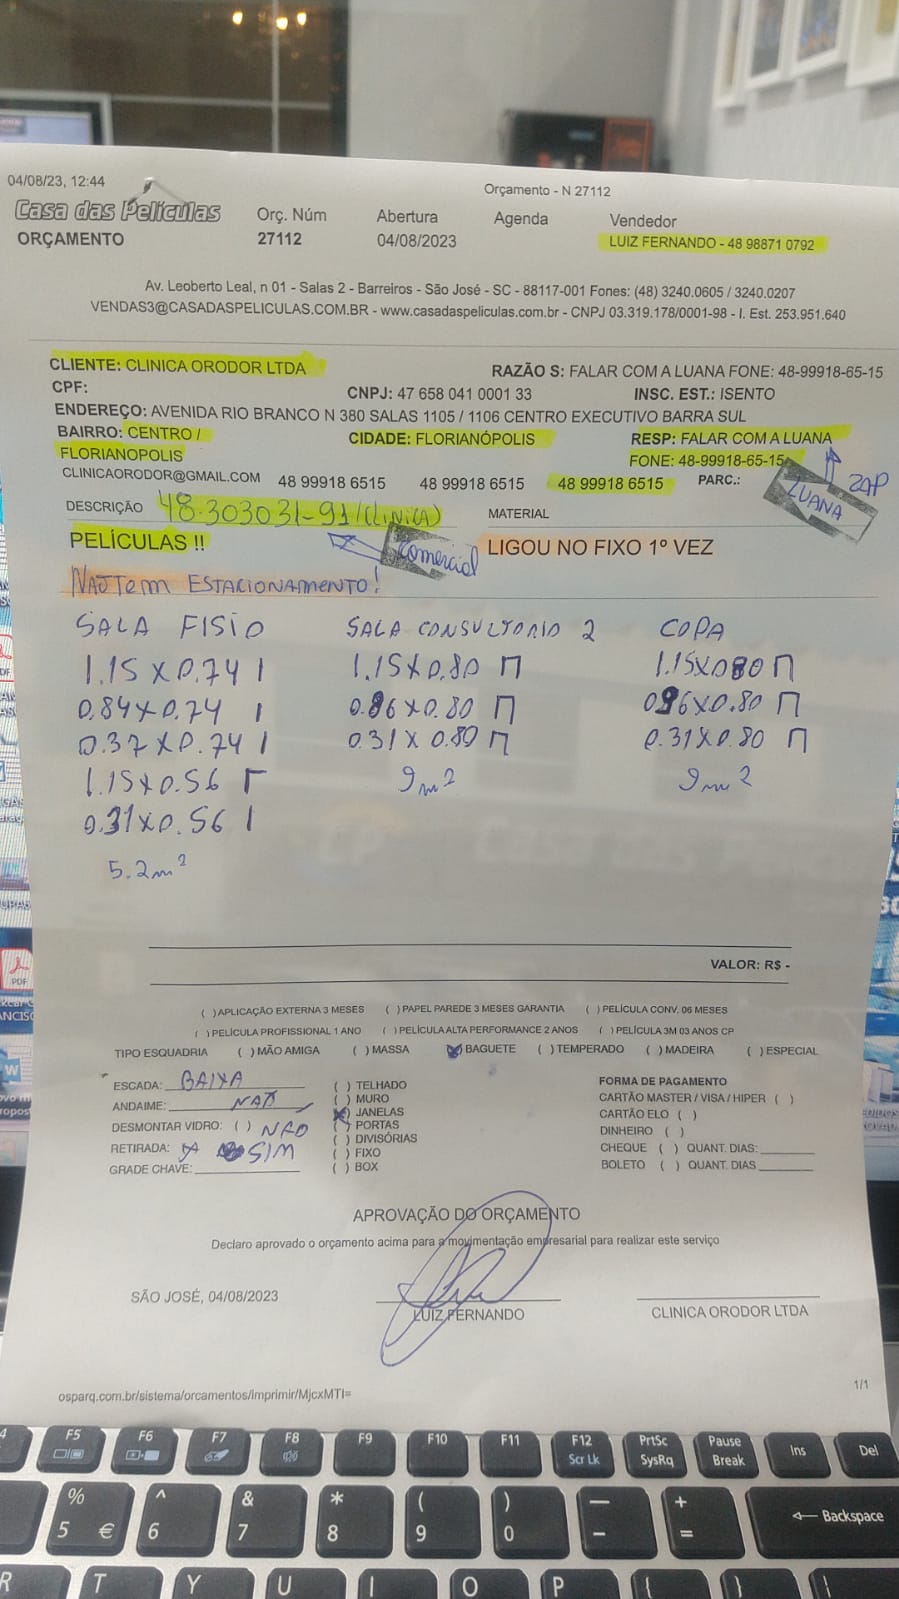 04/08/23, 12:44
Orçamento - N 27112
Casa das Películas
ORÇAMENTO
Orç. Núm
27112
Abertura
04/08/2023
Agenda
Vendedor
LUIZ FERNANDO - 48 98871 0792
Av. Leoberto Leal, n 01 - Salas 2 - Barreiros - São José - SC - 88117-001 Fones: (48) 3240.0605 / 3240.0207
VENDAS3@CASADASPELICULAS.COM.BR - www.casadaspeliculas.com.br - CNPJ 03.319.178/0001-98 - I. Est. 253.951.640
CLIENTE: CLINICA ORODOR LTDA
RAZÃO S: FALAR COM A LUANA FONE: 48-99918-65-15
CPF:
CNPJ: 47 658 041 0001 33
INSC. EST.: ISENTO
ENDEREÇO: AVENIDA RIO BRANCO N 380 SALAS 1105 / 1106 CENTRO EXECUTIVO BARRA SUL
BAIRRO: CENTRO / FLORIANOPOLIS
CIDADE: FLORIANÓPOLIS
RESP: FALAR COM A LUANA
FONE: 48-99918-65-15
CLINICAORODOR@GMAIL.COM
48 99918 6515
48 99918 6515
48 99918 6515
PARC.:
LUANA
ZAP
DESCRIÇÃO
48.303031-91/(CLINICA)
MATERIAL
PELÍCULAS !!
Comercial
LIGOU NO FIXO 1º VEZ
NAO TEM ESTACIONAMENTO!
SALA FISIO
1.15 X 0.74 I
0.84 X 0.74 I
0.37 X 0.74 I
1.15 X 0.56 Γ
0.31 X 0.56 I
5.2m²
SALA CONSULTORIO 2
1.15 X 0.80 Π
0.86 X 0.80 Π
0.31 X 0.80 Π
9m²
COPA
1.15 X 0.80 Π
0.86 X 0.80 Π
0.31 X 0.80 Π
9m²
VALOR: R$ -
( ) APLICAÇÃO EXTERNA 3 MESES ( ) PAPEL PAREDE 3 MESES GARANTIA ( ) PELÍCULA CONV. 06 MESES
( ) PELÍCULA PROFISSIONAL 1 ANO ( ) PELÍCULA ALTA PERFORMANCE 2 ANOS ( ) PELÍCULA 3M 03 ANOS CP
TIPO ESQUADRIA ( ) MÃO AMIGA ( ) MASSA (X) BAGUETE ( ) TEMPERADO ( ) MADEIRA ( ) ESPECIAL
ESCADA: BAIXA
ANDAIME: NAO
DESMONTAR VIDRO: ( ) NÃO
RETIRADA: X SIM
GRADE CHAVE:
( ) TELHADO
( ) MURO
(X) JANELAS
( ) PORTAS
( ) DIVISÓRIAS
( ) FIXO
( ) BOX
FORMA DE PAGAMENTO
CARTÃO MASTER / VISA / HIPER ( )
CARTÃO ELO ( )
DINHEIRO ( )
CHEQUE ( ) QUANT. DIAS:
BOLETO ( ) QUANT. DIAS
APROVAÇÃO DO ORÇAMENTO
Declaro aprovado o orçamento acima para a movimentação empresarial para realizar este serviço
SÃO JOSÉ, 04/08/2023
LUIZ FERNANDO
CLINICA ORODOR LTDA
osparq.com.br/sistema/orcamentos/imprimir/MjcxMTI=
1/1
F5 F6 F7 F8 F9 F10 F11 F12 Scr Lk PrtSc SysRq Pause Break Ins Del
% 5 € ^ 6 & 7 * 8 ( 9 ) 0 — - + = Backspace
R T Y U I O P { }